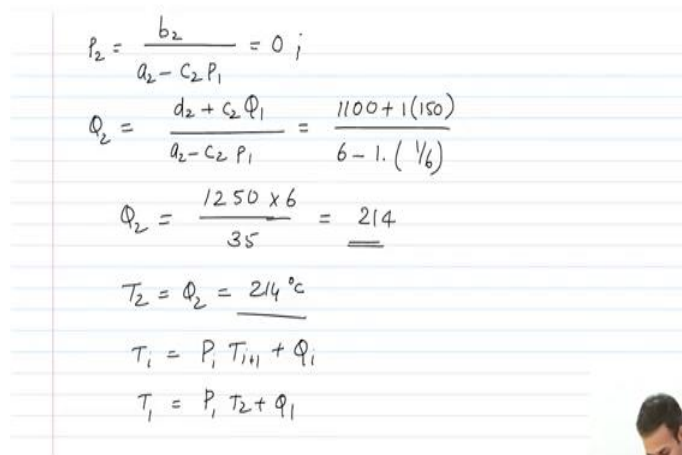 P₂ = b₂ / (a₂ - c₂ P₁) = 0 ;
Q₂ = (d₂ + c₂ Q₁) / (a₂ - c₂ P₁) = (1100 + 1(150)) / (6 - 1. (1/6))
Q₂ = (1250 x 6) / 35 = 214
T₂ = Q₂ = 214 °c
Tᵢ = Pᵢ Tᵢ₊₁ + Qᵢ
T₁ = P₁ T₂ + Q₁